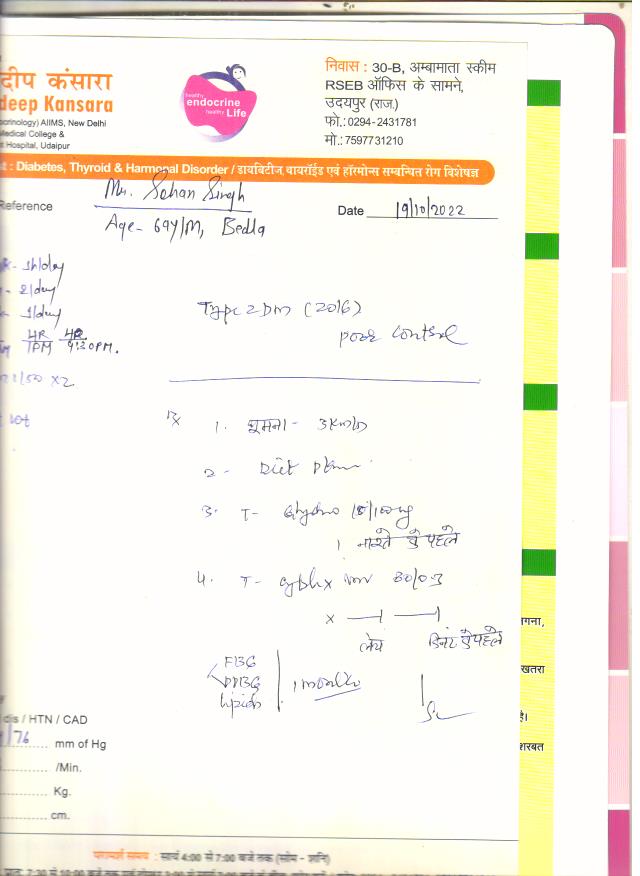 दीप कंसारा
deep Kansara
ocrinology) AIIMS, New Delhi
Medical College &
t Hospital, Udaipur
healthy
endocrine
healthy Life
निवास : 30-B, अम्बामाता स्कीम
RSEB ऑफिस के सामने,
उदयपुर (राज.)
फो.:0294-2431781
मो.:7597731210
t : Diabetes, Thyroid & Harmonal Disorder / डायबिटीज, थायरॉईड एवं हॉरमोन्स सम्बन्धित रोग विशेषज्ञ
Reference
Mr. Sohan Singh
Age- 69Y/M, Bedla
Date 19/10/2022
1/day
2/day
1/day
4R 4R
1PM 4:30PM.
1/50 x2
Type 2 DM (2016)
poor control
Rx 1. घूमना - 3km/D
2 - Diet plan
3. T-
1 नाश्ते से पहले
4. T-
x
लंच डिनर से पहले
FBG
PPBG
Lipids
1 month
गना,
खतरा
है।
शरबत
dis / HTN / CAD
/76 mm of Hg
/Min.
Kg.
cm.
परामर्श समय : सायं 4:00 से 7:00 बजे तक (सोम - शनि)